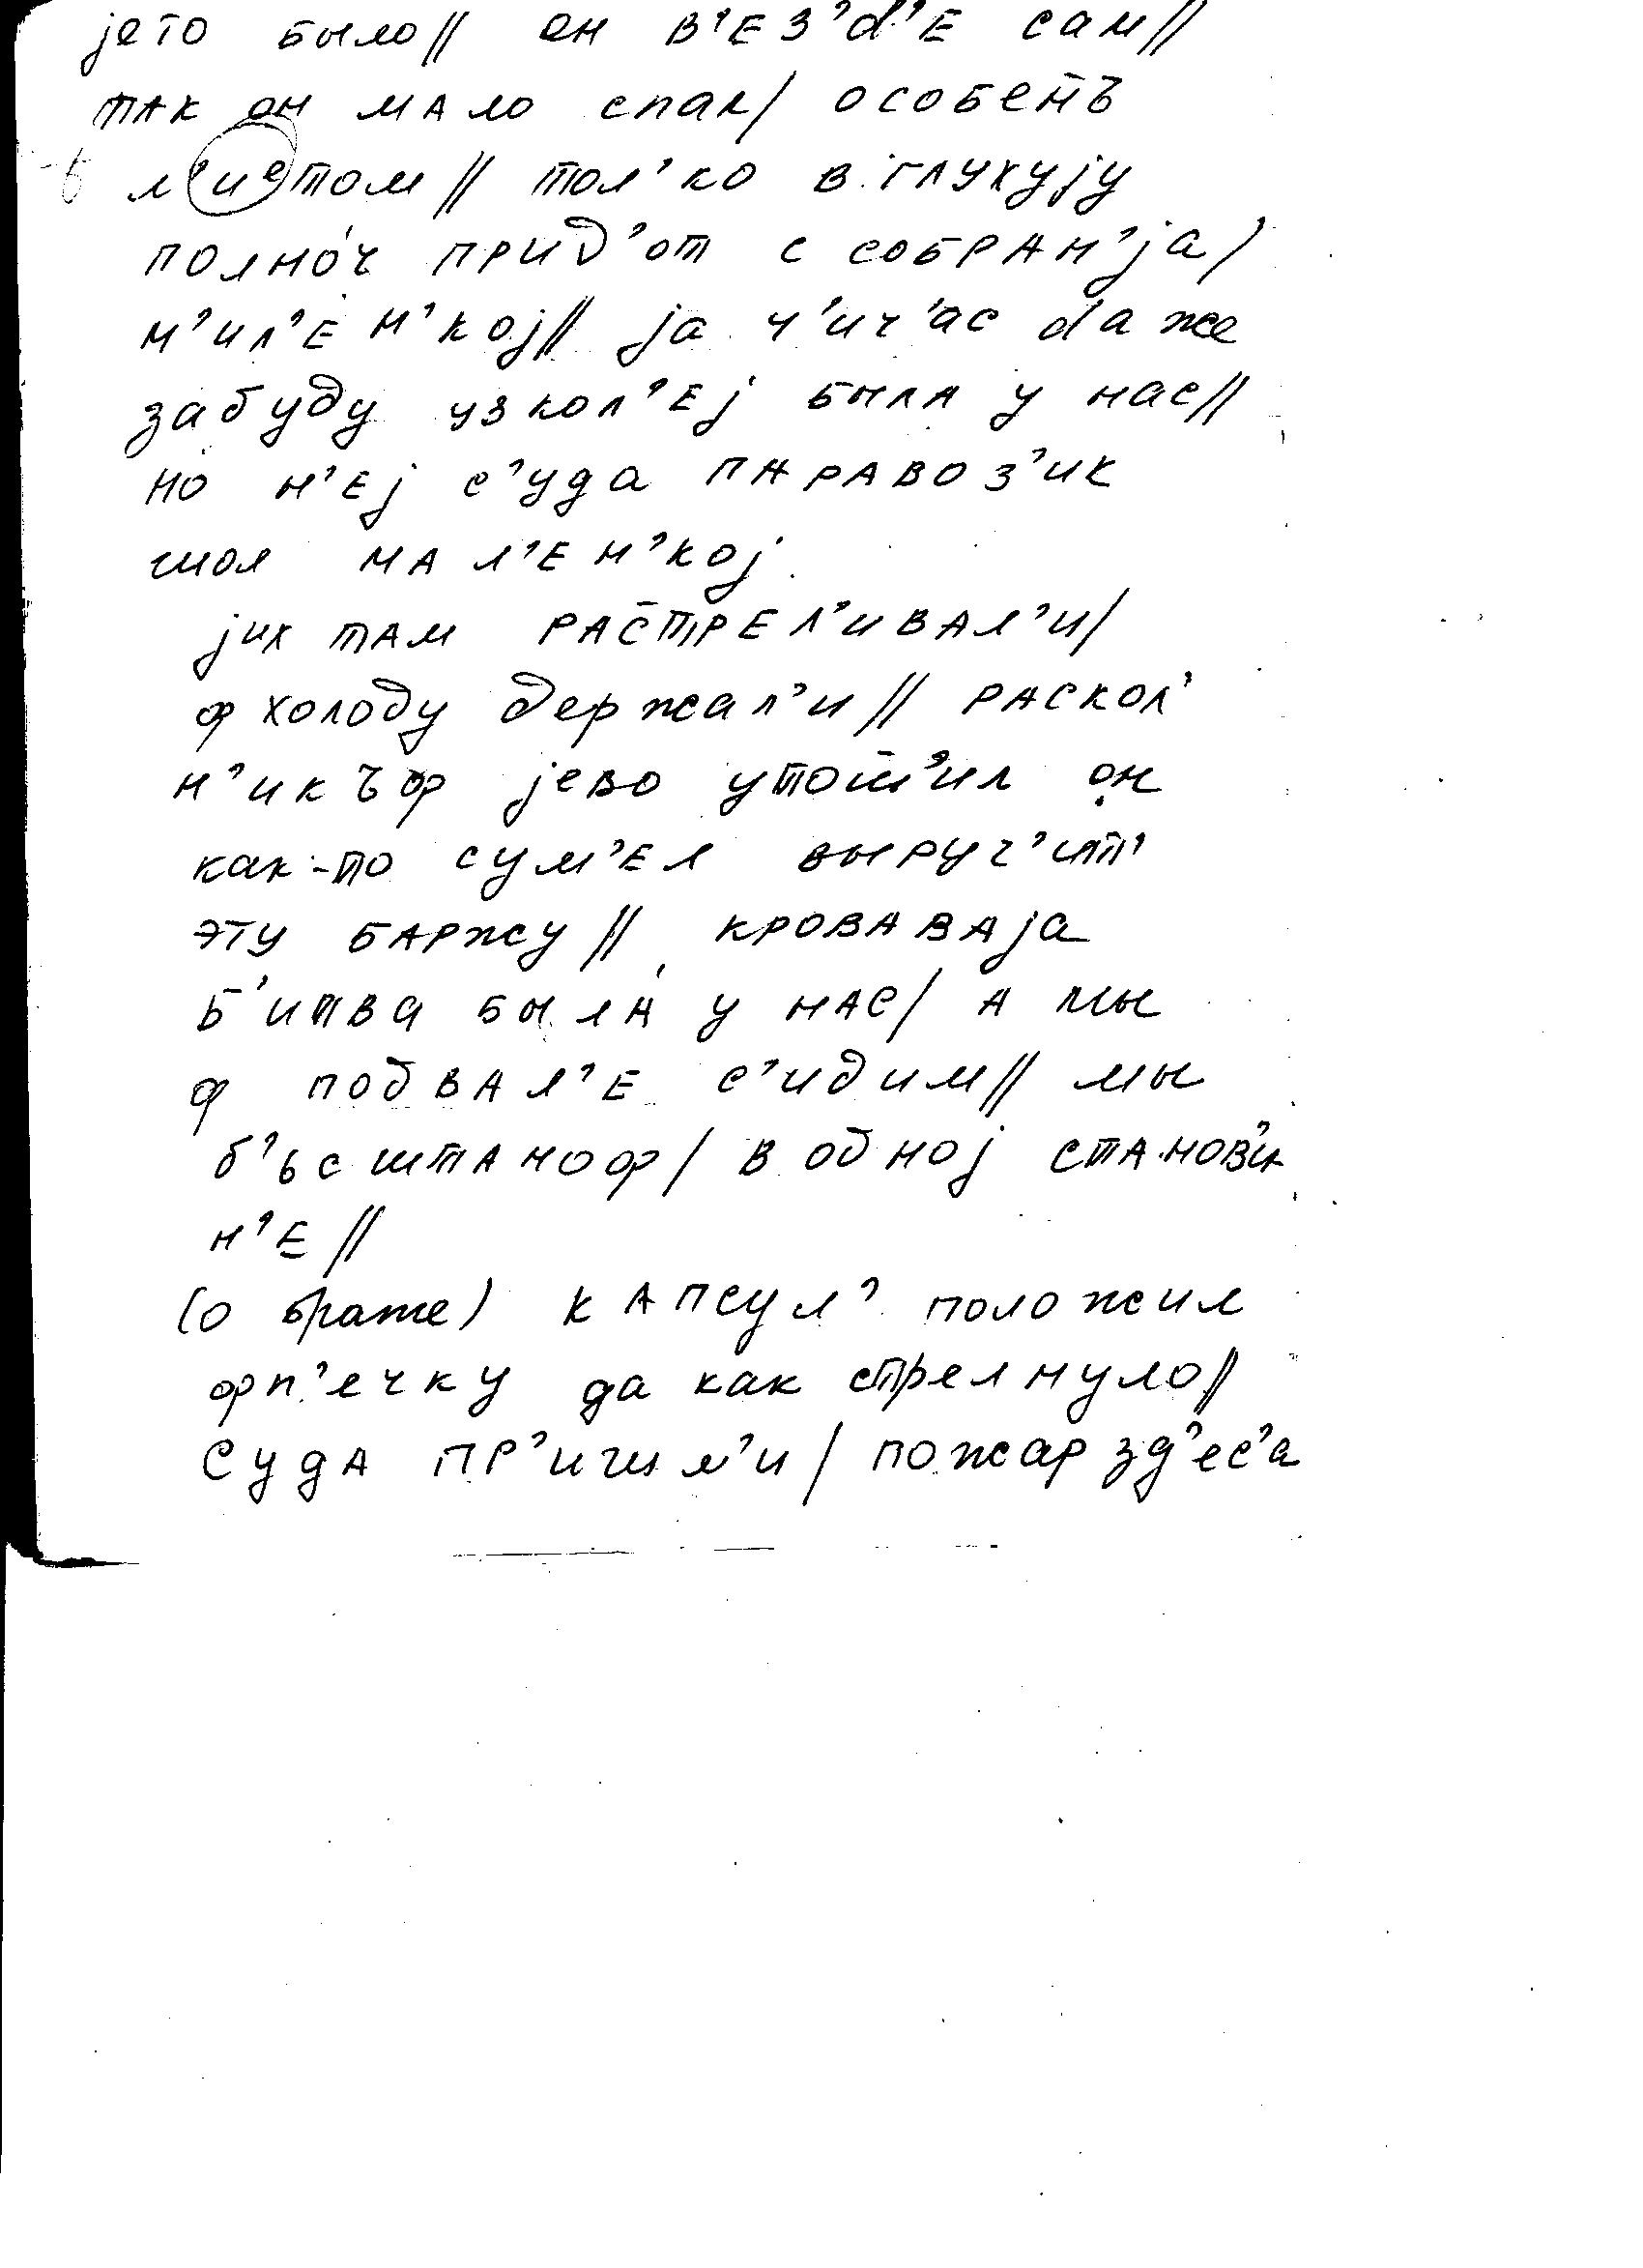 jето было// он в'ез'д'е сам//
так он мало спал/ особен̄ъ
л'иᵉтом// тол'ко в глухуjу
полно́ч прид'от с собран'jа/
м'ил'ен'коj// jа ч'ич'ас даже
забуду узкол'еj была у нас//
но н'еj с'уда паравоз'ик
шол мал'ен'коj.
jих там рас̄трел'ивал'и/
ф холоду держал'и// раскол'
н'икъф jево утоп̄'ил он
как-то сум'ел выруч'ит'
эту баржу// кроваваjа
б'итва была́ у нас/ а мы
ф подвал'е с'идим// мы
б'ьс штаноф/ в одноj станов'и
н'е//
(о брате) капсул' положил
фп'ечку да как стрелнуло//
суда пр'ишл'и/ пожар зд'ес'а